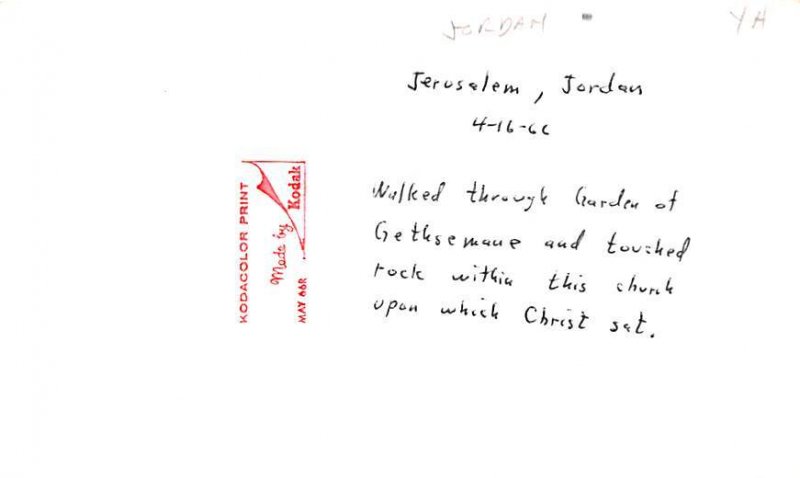 JORDAN YA
Jerusalem, Jordan
4-16-66
Walked through Garden of
Gethsemane and touched
rock within this church
upon which Christ sat.
KODACOLOR PRINT
Made by
Kodak
MAY 66R